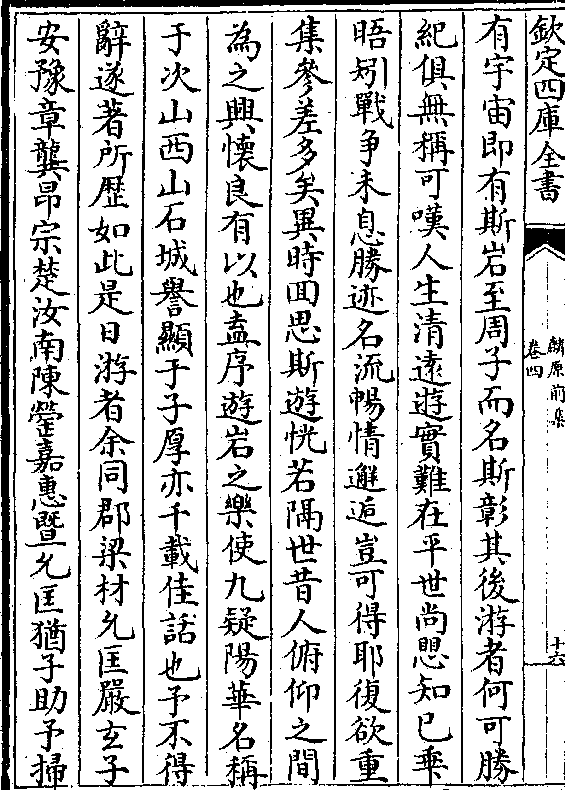 欽定四庫全書
麟原前集
卷四
十六
有宇宙即有斯岩至周子而名斯彰其後游者何可勝
紀俱無稱可嘆人生清遠遊實難在平世尚愳知已乖
晤矧戰争未息勝迹名流暢情邂逅豈可得耶復欲重
集參差多矣異時囬思斯遊恍若隔世昔人俯仰之間
為之興懷良有以也盍序遊岩之樂使九疑陽華名稱
于次山西山石城譽顯于子厚亦千載佳話也予不得
辭遂著所歷如此是日游者余同郡梁材允匡嚴玄子
安豫章龔昂宗楚汝南陳塋嘉惠暨允匡猶子助予掃